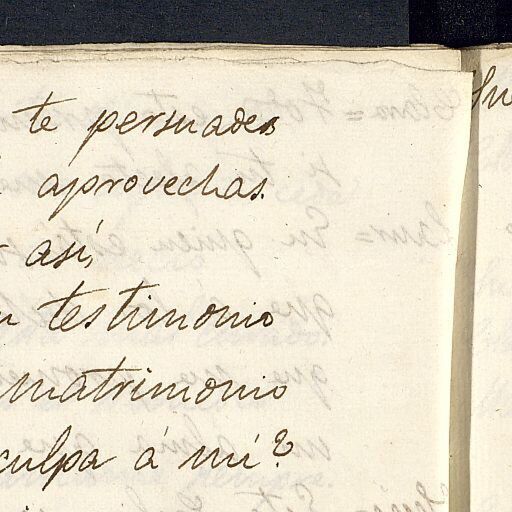 te persuades
aprovechas.
así,
testimonio
matrimonio
culpa á mí?